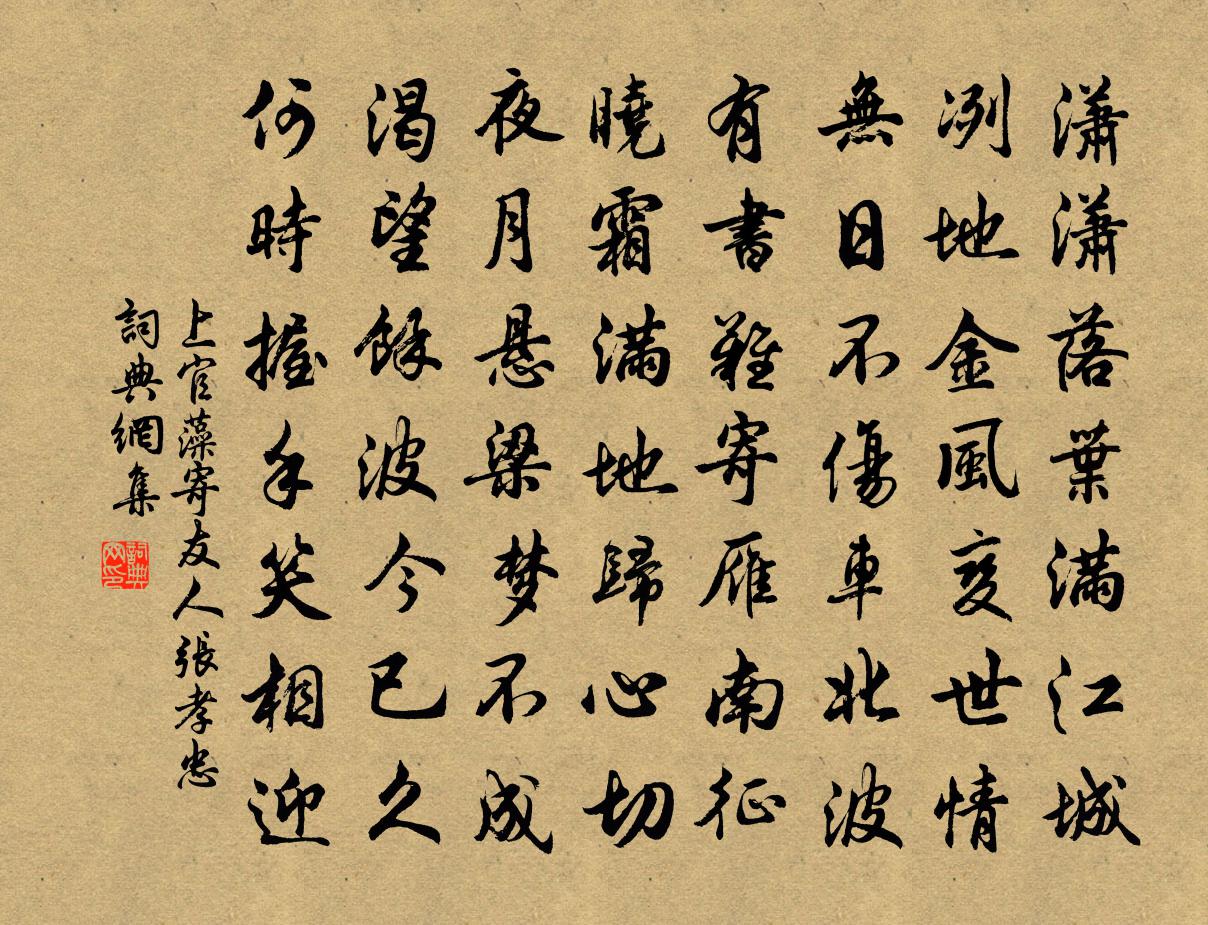 瀟瀟落葉滿江城
冽地金風变世情
無日不傷車北波
有書難寄雁南征
曉霜滿地歸心切
夜月悬梁梦不成
渴望餘波今已久
何時握手笑相迎
上官藻寄友人張孝忠
詞典網集
詞典